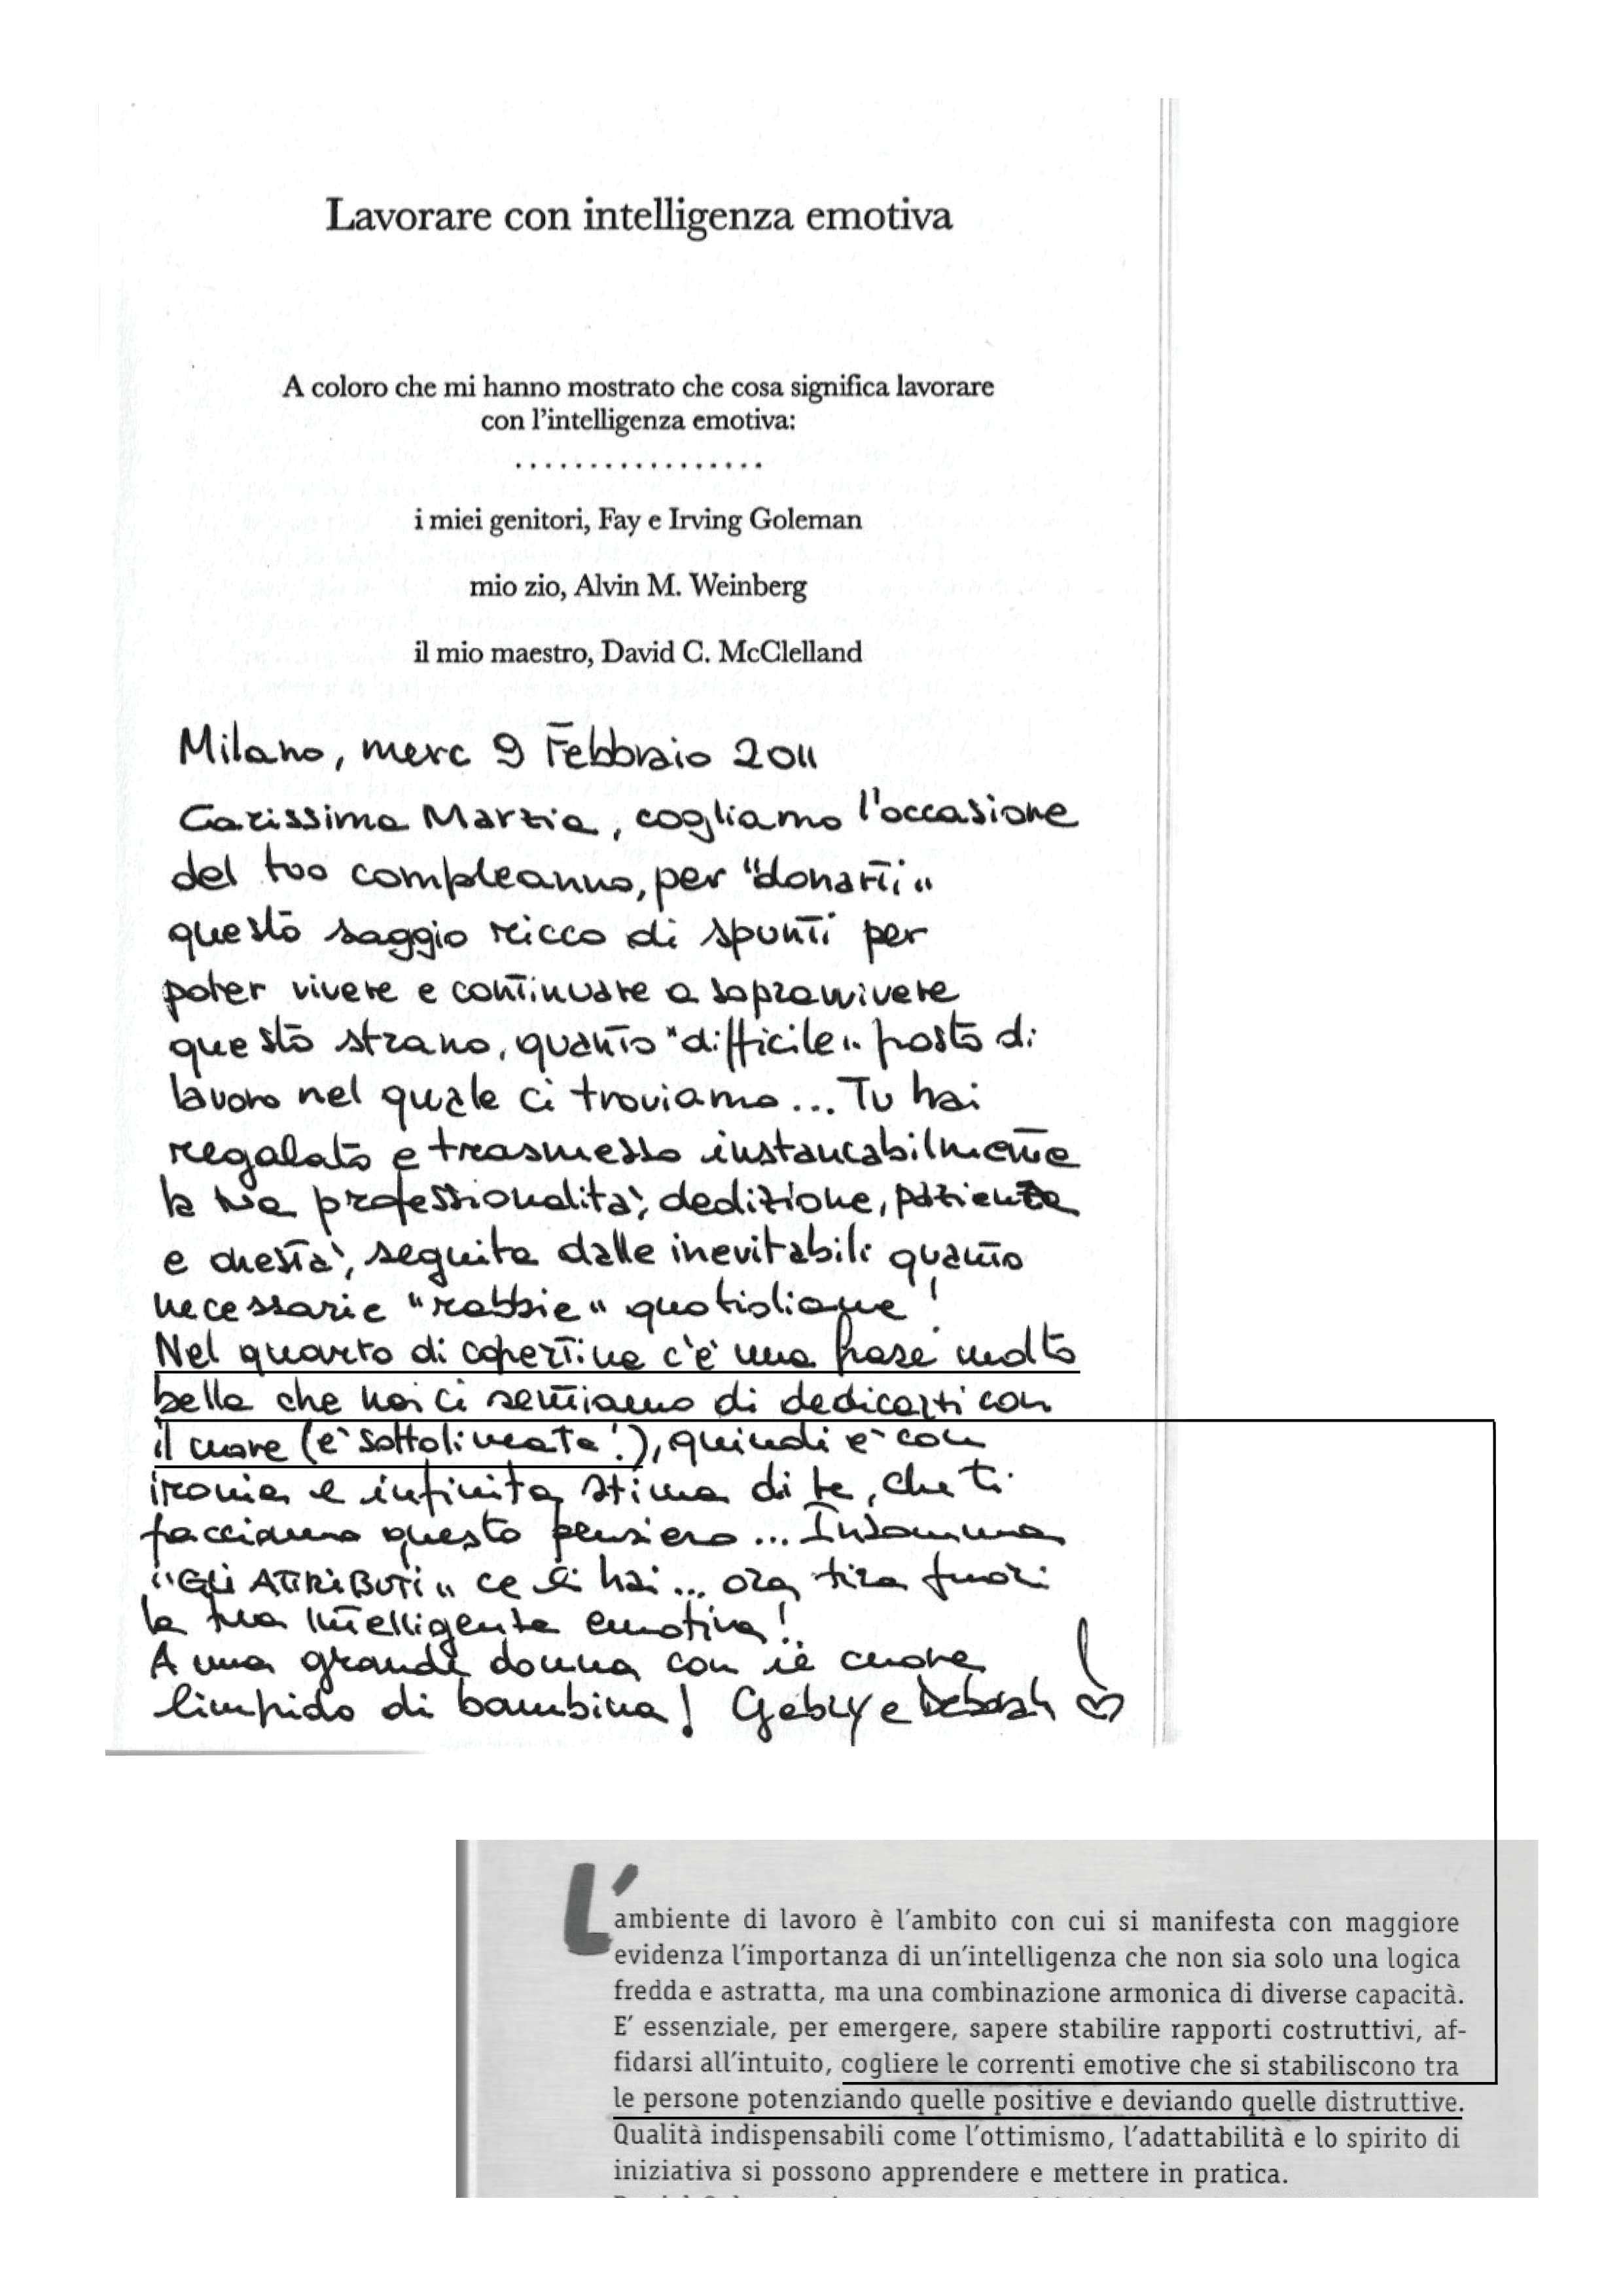 Lavorare con intelligenza emotiva
A coloro che mi hanno mostrato che cosa significa lavorare
con l'intelligenza emotiva:
.................
i miei genitori, Fay e Irving Goleman
mio zio, Alvin M. Weinberg
il mio maestro, David C. McClelland
Milano, merc 9 Febbraio 2011
Carissima Marzia, cogliamo l'occasione
del tuo compleanno, per "donarti"
questo saggio ricco di spunti per
poter vivere e continuare a sopravvivere
questo strano, quanto "difficile" posto di
lavoro nel quale ci troviamo... Tu hai
regalato e trasmesso instancabilmente
la tua professionalità, dedizione, pazienza
e onestà, seguita dalle inevitabili quanto
necessarie "rabbie" quotidiane!
Nel quarto di copertina c'è una frase molto
bella che noi ci sentiamo di dedicarti con
il cuore (è sottolineata!), quindi è con
ironia e infinita stima di te, che ti
facciamo questo pensiero... Insomma
"GLI ATTRIBUTI" ce li hai... ora tira fuori
la tua intelligenza emotiva!
A una grande donna con il cuore
limpido di bambina! Gabry e Deborah
L'ambiente di lavoro è l'ambito con cui si manifesta con maggiore
evidenza l'importanza di un'intelligenza che non sia solo una logica
fredda e astratta, ma una combinazione armonica di diverse capacità.
E' essenziale, per emergere, sapere stabilire rapporti costruttivi, af-
fidarsi all'intuito, cogliere le correnti emotive che si stabiliscono tra
le persone potenziando quelle positive e deviando quelle distruttive.
Qualità indispensabili come l'ottimismo, l'adattabilità e lo spirito di
iniziativa si possono apprendere e mettere in pratica.